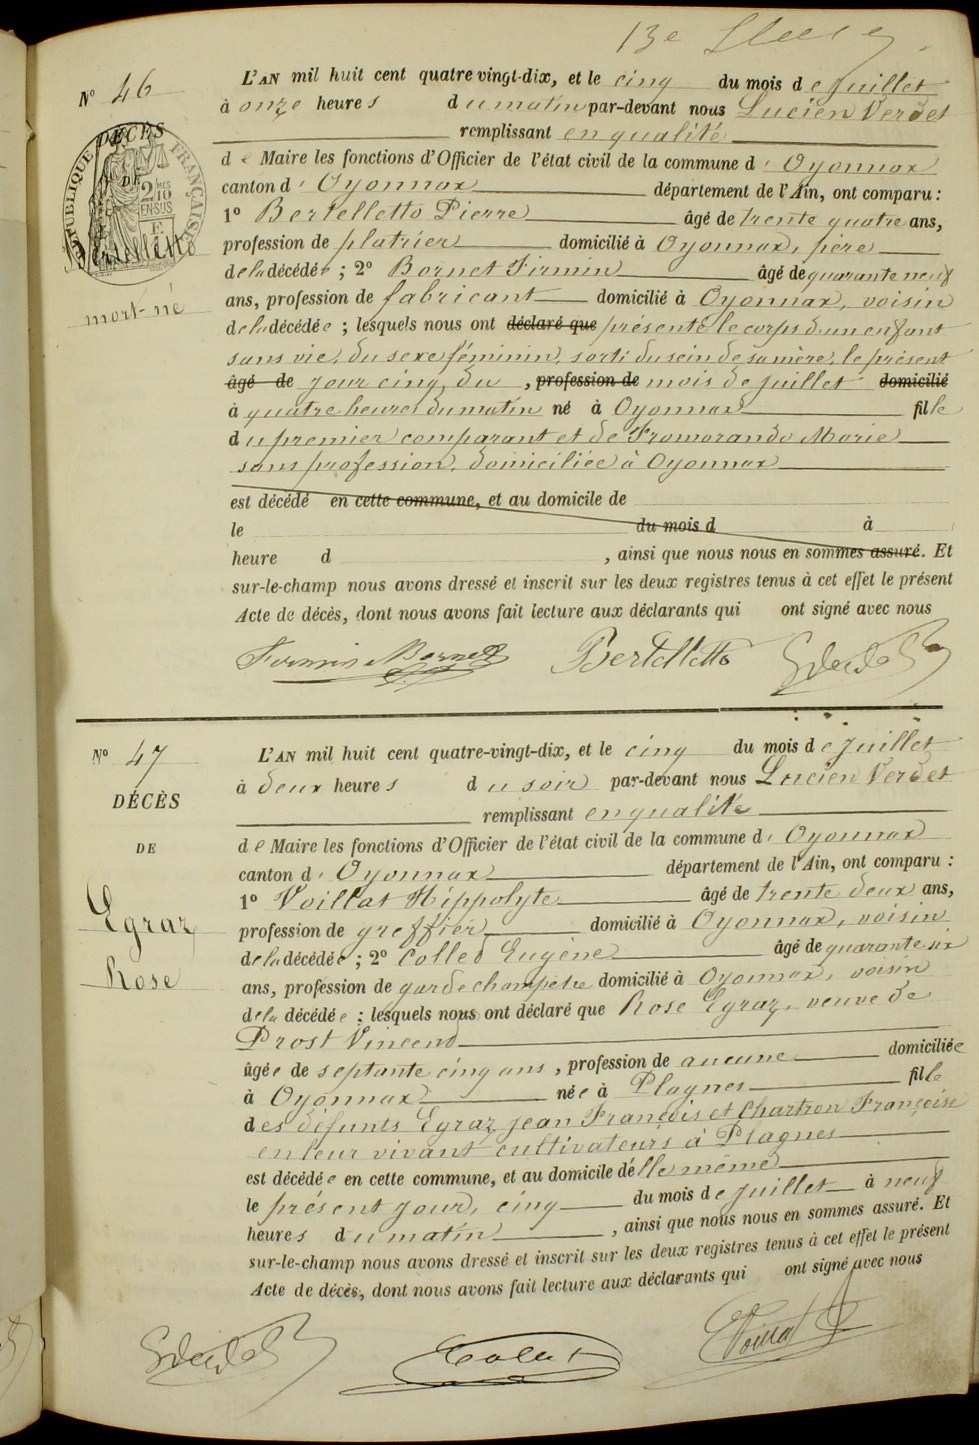 13e
No 46
L'AN mil huit cent quatre vingt-dix, et le cinq du mois de Juillet
à onze heures du matin par-devant nous Lucien Verdet
remplissant en qualité
de Maire les fonctions d'Officier de l'état civil de la commune d' Oyonnax
canton d' Oyonnax département de l'Ain, ont comparu :
1o Bertelletto Pierre âgé de trente quatre ans,
profession de platrier domicilié à Oyonnax, père
de la décédée ; 2o Bornet Firmin âgé de quarante neuf
ans, profession de fabricant domicilié à Oyonnax, voisin
de la décédée ; lesquels nous ont déclaré que présenté le corps d'un enfant
sans vie, du sexe féminin, sorti du sein de sa mère, le présent
âgé de jour cinq du , profession de mois de juillet domicilié
à quatre heures du matin né à Oyonnax fille
du premier comparant et de Fromorando Marie
sans profession, domiciliée à Oyonnax
est décédé en cette commune, et au domicile de
le du mois d à
heure d , ainsi que nous nous en sommes assuré. Et
sur-le-champ nous avons dressé et inscrit sur les deux registres tenus à cet effet le présent
Acte de décès, dont nous avons fait lecture aux déclarants qui ont signé avec nous
RÉPUBLIQUE FRANÇAISE
DÉCÈS
DE
Bertelletto
mort-né
Firmin Bornet Bertelletto
No 47
DÉCÈS
DE
Egraz
Rose
L'AN mil huit cent quatre-vingt-dix, et le cinq du mois de Juillet
à deux heures du soir par-devant nous Lucien Verdet
remplissant en qualité
de Maire les fonctions d'Officier de l'état civil de la commune d' Oyonnax
canton d' Oyonnax département de l'Ain, ont comparu :
1o Voillat Hippolyte âgé de trente deux ans,
profession de greffier domicilié à Oyonnax, voisin
de la décédée ; 2o Collet Eugène âgé de quarante six
ans, profession de garde champetre domicilié à Oyonnax, voisin
de la décédée ; lesquels nous ont déclaré que Rose Egraz, veuve de
Prost Vincent
âgée de septante cinq ans , profession de aucune domiciliée
à Oyonnax née à Plagnes fille
des défunts Egraz Jean François et Chartron Françoise
en leur vivant cultivateurs à Plagnes
est décédée en cette commune, et au domicile d'elle même
le présent jour, cinq du mois de juillet à neuf
heures du matin , ainsi que nous nous en sommes assuré. Et
sur-le-champ nous avons dressé et inscrit sur les deux registres tenus à cet effet le présent
Acte de décès, dont nous avons fait lecture aux déclarants qui ont signé avec nous
Collet Voillat